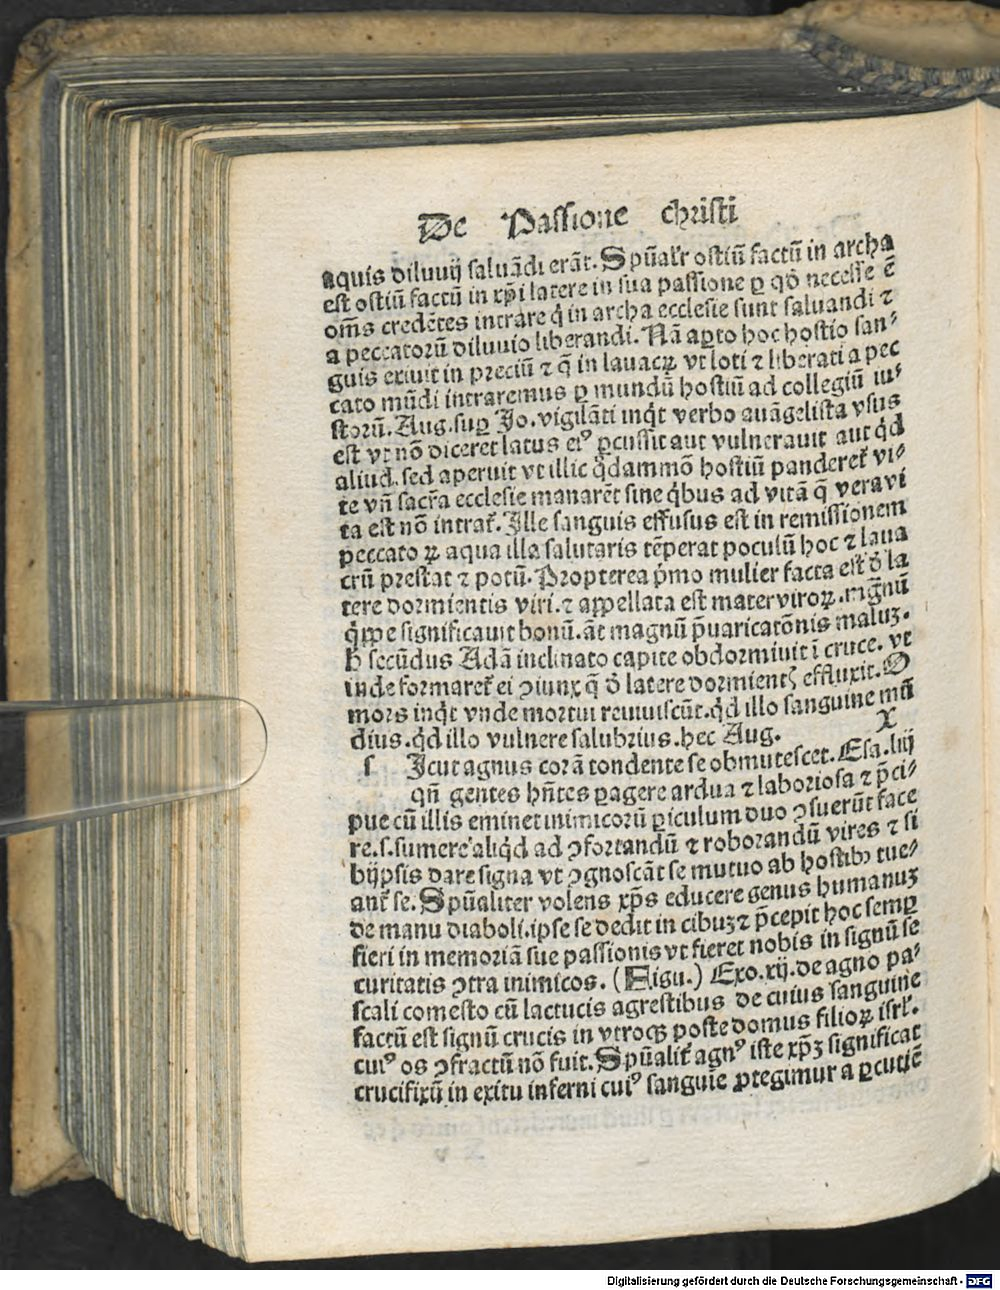 De Passione christi
aquis diluuij saluādi erāt. Spūalr̄ ostiū factū in archa
est ostiū factū in xp̄i latere in sua passione ꝑ qđ necesse ē
om̄s credētes intrare q̇ in archa ecclesie sunt saluandi ⁊
a peccatorū diluuio liberandi. Nā aꝑto hoc hostio san⸗
guis exiuit in preciū ⁊ q̄ in lauacꝝ vt loti ⁊ liberati a pec
cato mūdi intraremus ꝑ mundū hostiū ad collegiū iu⸗
storū. Aug. suꝑ Jo. vigilāti inq̇t verbo auāgelista vsus
est vt nō diceret latus eiꝰ ꝑcussit aut vulnerauit aut q̇d
aliud. sed aperuit vt illic q̇dammō hostiū panderet᷑ vi⸗
te vn̄ sacr̄a ecclesie manarēt sine q̇bus ad vitā q̄ vera vi
ta est nō intrat᷑. Ille sanguis effusus est in remissionem
peccatoꝝ aqua illa salutaris tēperat poculū hoc ⁊ laua
crū prestat ⁊ potū. Propterea ṗmo mulier facta est đ la
tere dormientis viri. ⁊ appellata est mater viroꝝ. mḡnū
q̇ppe significauit bonū. āt magnū p̄uaricatōnis maluꝫ.
h̄ secūdus Adā inclinato capite obdormiuit ī cruce. vt
inde formaret᷑ ei ꝯiunx q̄ đ latere dormientꝭ effluxit. O
mors inq̇t vnde mortui reuiuiscūt. q̇d illo sanguine mū
dius. q̇d illo vulnere salubrius. hec Aug.
X
s Icut agnus corā tondente se obmutescet. Esa. liij
qn̄ gentes hn̄tes ꝑagere ardua ⁊ laboriosa ⁊ p̄ci⸗
pue cū illis eminet inimicorū ꝑiculum duo ꝯsuerūt face
re. s. sumere aliq̇d ad ꝯfortandū ⁊ roborandū vires ⁊ si
bijpsis dare signa vt ꝯgnoscāt se mutuo ab hostibꝫ tue⸗
ant᷑ se. Spūaliter volens xp̄s educere genus humanuꝫ
de manu diaboli. ipse se dedit in cibuꝫ ⁊ p̄cepit hoc semꝑ
fieri in memoriā sue passionis vt fieret nobis in signū se
curitatis ꝯtra inimicos. (Figu.) Exo. xij. de agno pa⸗
scali comesto cū lactucis agrestibus de cuius sanguine
factū est signū crucis in vtroqꝫ poste domus filioꝝ isrl̄.
cuiꝰ os ꝯfractū nō fuit. Spūalit᷑ agnꝰ iste xp̄ꝫ significat
crucifixū in exitu inferni cuiꝰ sanguie ꝓtegimur a ꝑcutiē
Digitalisierung gefördert durch die Deutsche Forschungsgemeinschaft - DFG